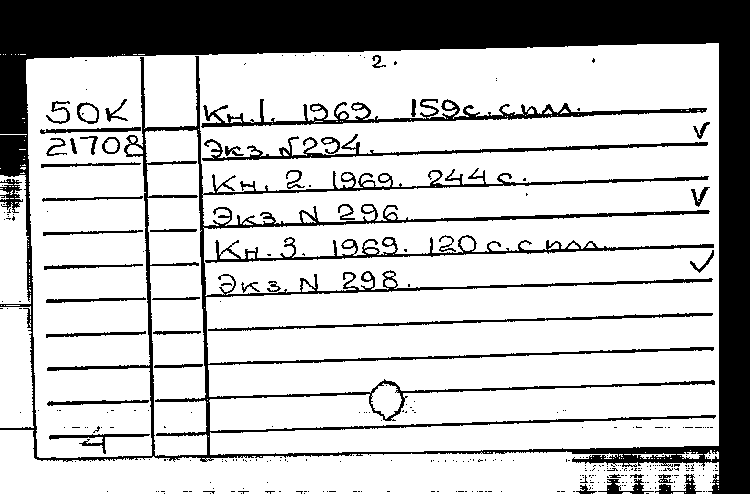 2.
50К Кн.1. 1969. 159с. с илл.
21708 Экз. N 294. V
Кн. 2. 1969. 244 с.
Экз. N 296. V
Кн. 3. 1969. 120 с. с илл.
Экз. N 298. V
4